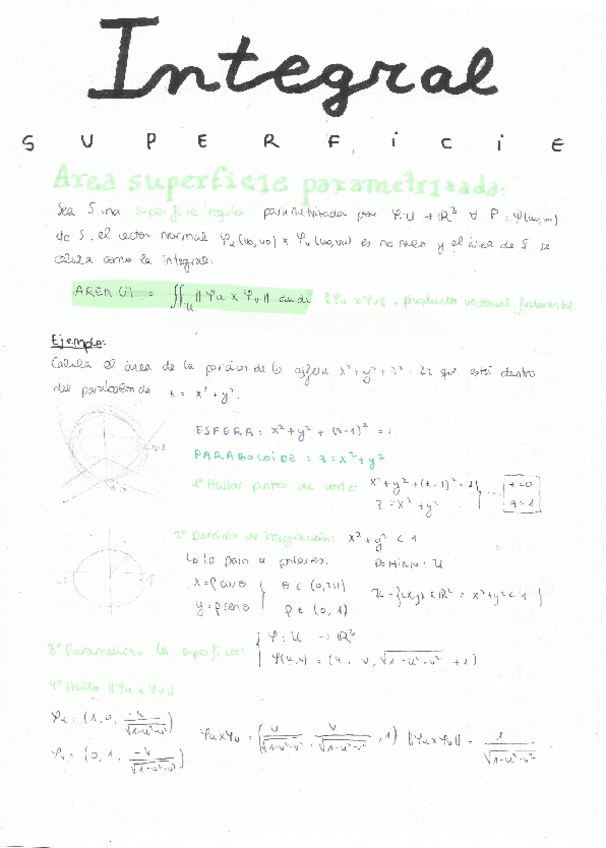 Integral
SUPERFICIE
Area superficie parametrizada:
Sea S una superficie regular parametrizada por φ:U → ℝ³ ∀ P = φ(u₀,v₀)
de S, el vector normal φu (u₀,v₀) × φv (u₀,v₀) es no nulo y el área de S se
calcula como la integral:
AREA (S) = ∬_U ‖φu × φv‖ du dv ‖φu × φv‖ = producto vectorial fundamental
Ejemplo:
Calcula el área de la porción de la esfera x² + y² + z² = 2z que está dentro
del paraboloide z = x² + y².
ESFERA: x² + y² + (z-1)² = 1
PARABOLOIDE: z = x² + y²
1º Hallar puntos de corte: x² + y² + (z-1)² = 1 } ... z=0
z = x² + y² z=1
2º Dominio de integración: x² + y² < 1
Lo paso a polares: Dominio: U
x = ρ cos θ } θ ∈ (0, 2π) U = {(x,y) ∈ ℝ² = x² + y² < 1}
y = ρ sen θ ρ ∈ (0, 1)
3º Parametrizo la superficie: { φ: U → ℝ³
φ(u,v) = (u, v, √1-u²-v² + 1)
4º Hallo ‖φu × φv‖
φu = (1, 0, -u/√1-u²-v²)
φu × φv = (u/√1-u²-v², v/√1-u²-v², 1) ‖φu × φv‖ = 1/√1-u²-v²
φv = (0, 1, -v/√1-u²-v²)